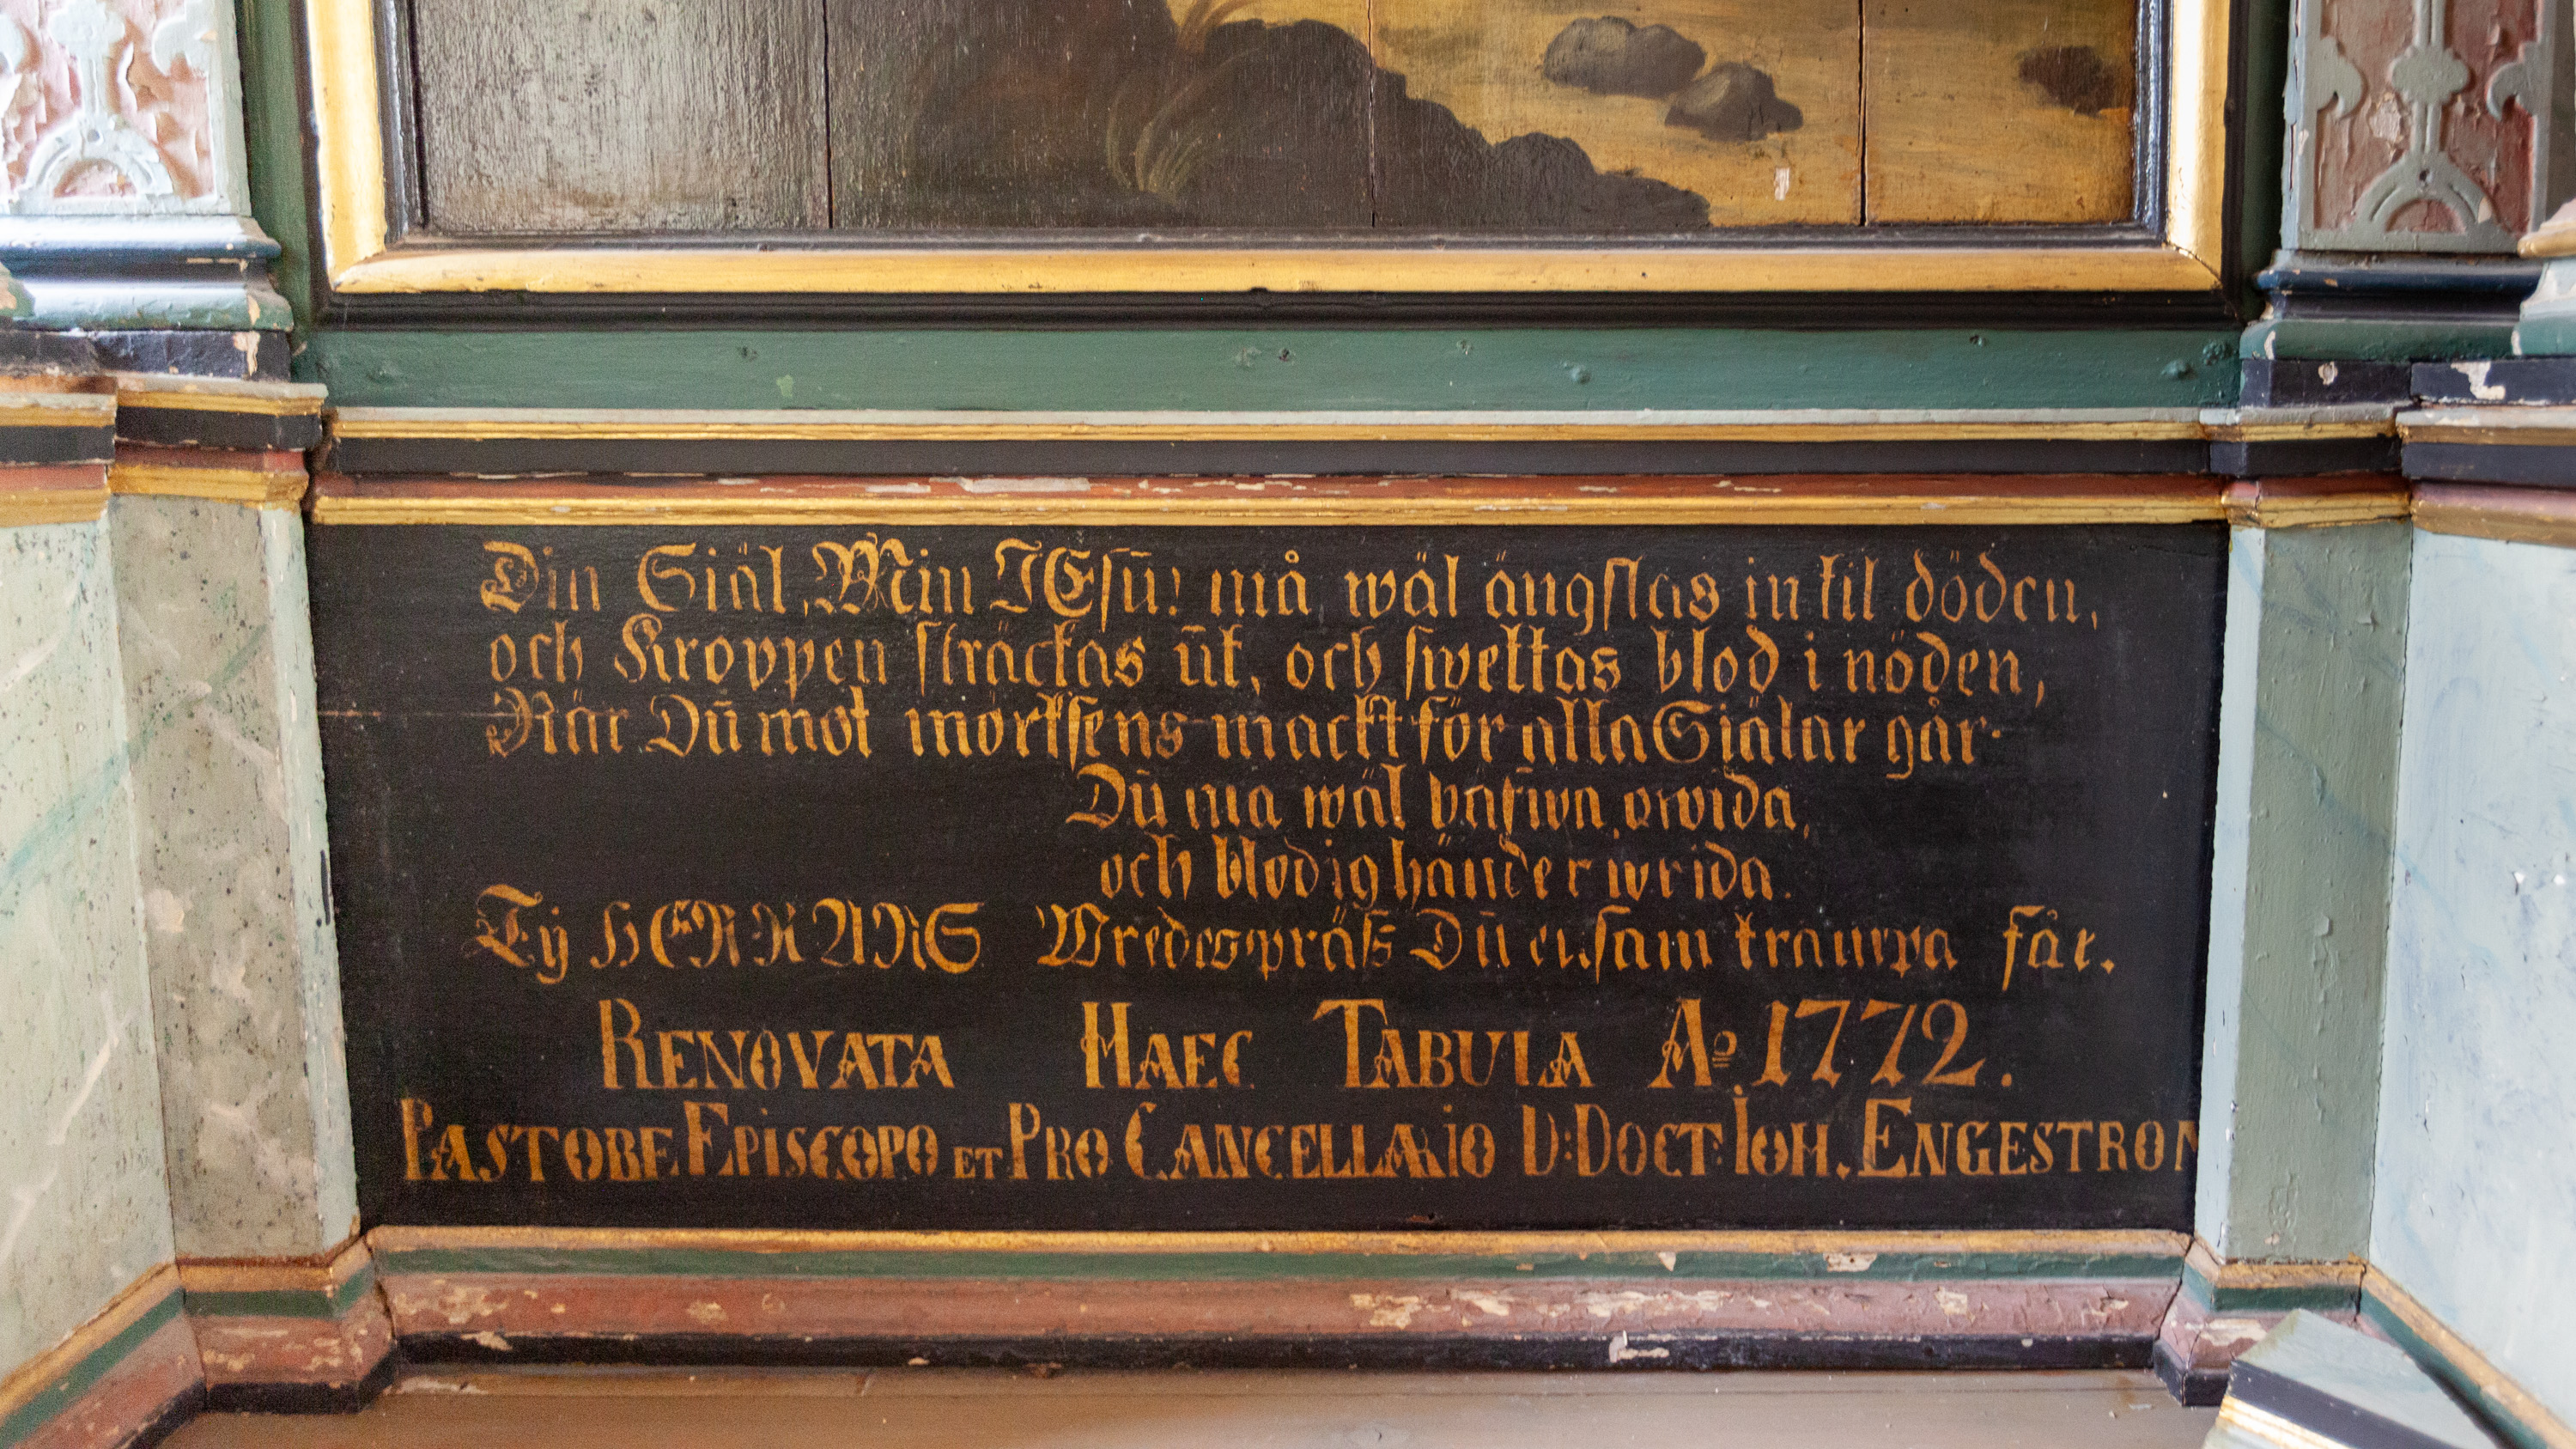 Din Siäl, Min JEsū! må wäl ängslas in til döden,
och Kroppen sträckas ūt, och swettas blod i nöden,
När Dū mot mörksens mackt för alla Siälar går.
Dū ma wäl
och blodig händer wrida.
Tÿ HERRANS Wredes präß Dū ensam trampa får.
RENOVATA HAEC TABULA Ao. 1772.
PASTOBE EPISCOPO ET PRO CANCELLARIO D: DOCT: IOH. ENGESTROM